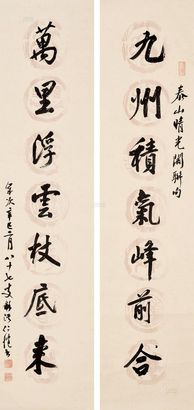 九州積氣峰前合
泰山晴光閣聯句
萬里浮雲杖底來
歲次辛巳二月